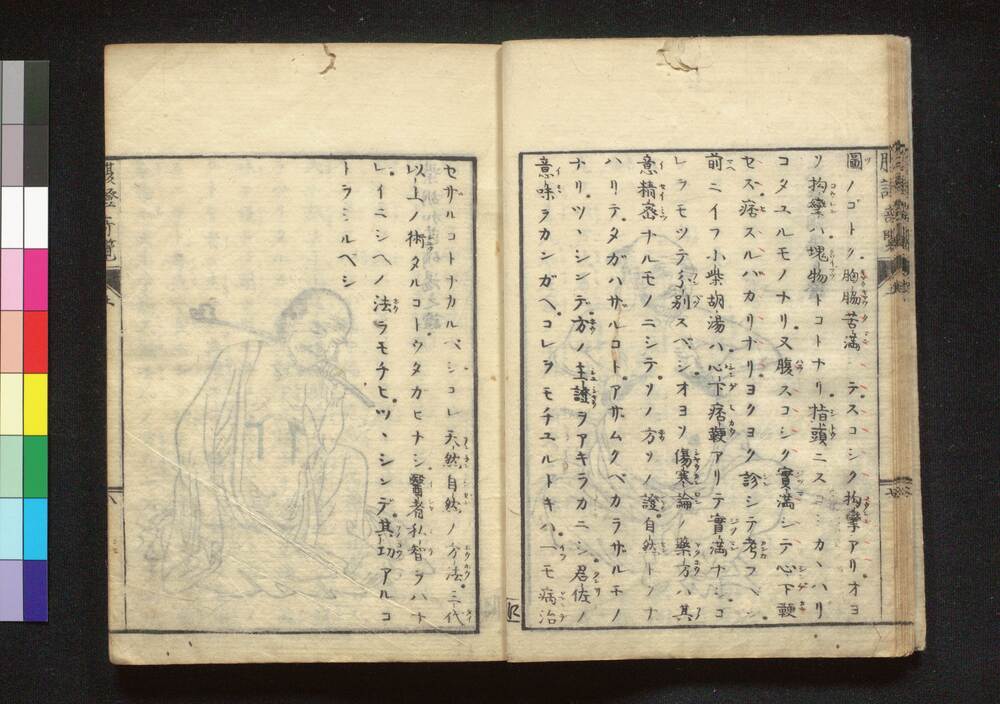 圖ノゴトク胸脇苦滿シテスコシク拘攣アリオヨ
ソ拘攣ハ塊物トコトナリ指頭ニスコシカヽハリ
コタユルモノナリ又腹スコシク實滿シテ心下鞕
セズ痞スルバカリナリヨクヨク診シテ考フベシ
前ニイフ小柴胡湯ハ心下痞鞕アリテ實滿ナシコ
レラモツテ分別スベシオヨソ傷寒論ノ藥方ハ其
意精密ナルモノニシテソノ方ソノ證自然トソナ
ハリテタガハザルコトアザムクベカラザルモノ
ナリツヽシンデ方ノ主證ヲアキラカニシ君佐ノ
意味ヲカンガヘコレラモチユルトキハ一モ病治
セザルコトナカルベシコレ天然自然ノ方法三代
以上ノ術タルコトウタカヒナシ醫者私智ヲハナ
レイニシヘノ法ヲモチヒツヽシンデ其功アルコ
トヲシルベシ
腹證奇覽
八